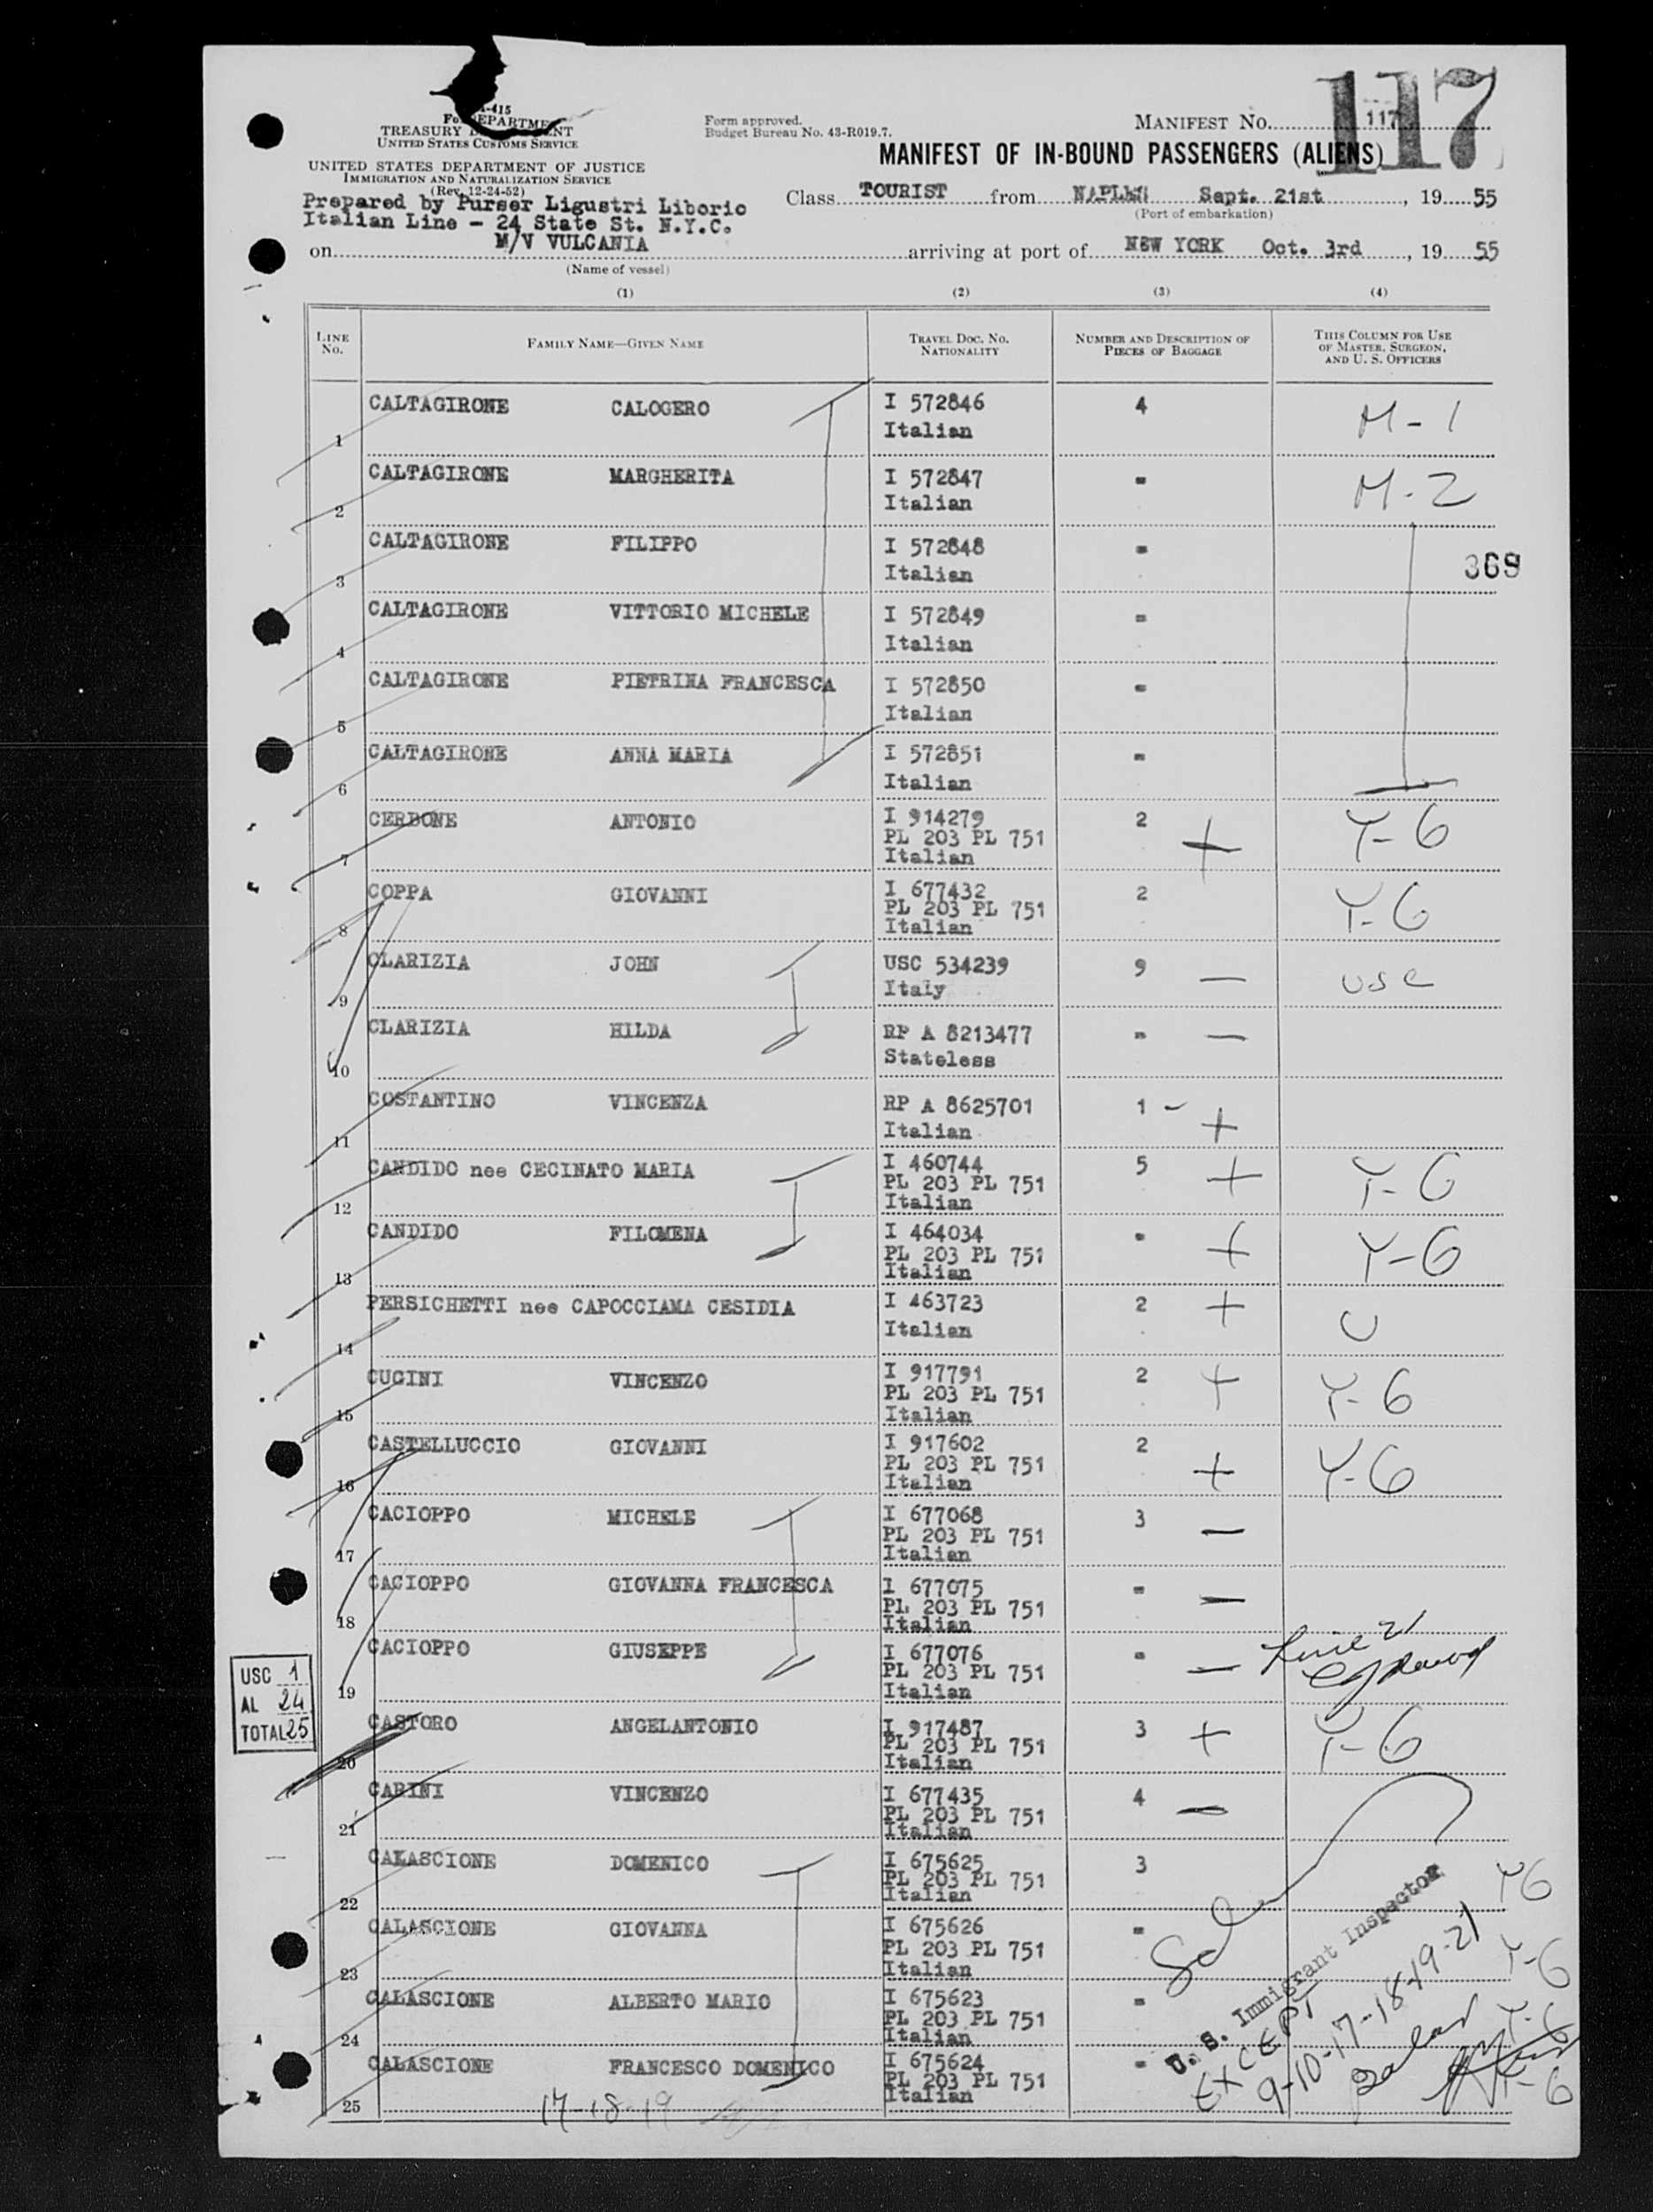 117
-415
TREASURY DEPARTMENT
UNITED STATES CUSTOMS SERVICE
Form approved.
Budget Bureau No. 43-R019.7.
MANIFEST No. 117
MANIFEST OF IN-BOUND PASSENGERS (ALIENS)
UNITED STATES DEPARTMENT OF JUSTICE
IMMIGRATION AND NATURALIZATION SERVICE
(Rev. 12-24-52)
Prepared by Purser Ligustri Liborio
Italian Line - 24 State St. N.Y.C.
Class TOURIST from NAPLES Sept. 21st, 19 55
(Port of embarkation)
on M/V VULCANIA arriving at port of NEW YORK Oct. 3rd, 19 55
(Name of vessel)
(1) (2) (3) (4)
LINE No. FAMILY NAME—GIVEN NAME TRAVEL DOC. NO. NATIONALITY NUMBER AND DESCRIPTION OF PIECES OF BAGGAGE THIS COLUMN FOR USE OF MASTER, SURGEON, AND U. S. OFFICERS
1 CALTAGIRONE CALOGERO I 572846 Italian 4 M-1
2 CALTAGIRONE MARGHERITA I 572847 Italian " M-2
3 CALTAGIRONE FILIPPO I 572848 Italian "
369
4 CALTAGIRONE VITTORIO MICHELE I 572849 Italian "
5 CALTAGIRONE PIETRINA FRANCESCA I 572850 Italian "
6 CALTAGIRONE ANNA MARIA I 572851 Italian "
7 CERBONE ANTONIO I 914279 PL 203 PL 751 Italian 2 + Y-6
8 COPPA GIOVANNI I 677432 PL 203 PL 751 Italian 2 Y-6
9 CLARIZIA JOHN USC 534239 Italy 9 — USC
10 CLARIZIA HILDA RP A 8213477 Stateless " —
11 COSTANTINO VINCENZA RP A 8625701 Italian 1 - +
12 CANDIDO nee CECINATO MARIA I 460744 PL 203 PL 751 Italian 5 + Y-6
13 CANDIDO FILOMENA I 464034 PL 203 PL 751 Italian " + Y-6
14 PERSICHETTI nee CAPOCCIAMA CESIDIA I 463723 Italian 2 + U
15 CUGINI VINCENZO I 917791 PL 203 PL 751 Italian 2 + Y-6
16 CASTELLUCCIO GIOVANNI I 917602 PL 203 PL 751 Italian 2 + Y-6
17 CACIOPPO MICHELE I 677068 PL 203 PL 751 Italian 3 —
18 CACIOPPO GIOVANNA FRANCESCA I 677075 PL 203 PL 751 Italian " —
19 CACIOPPO GIUSEPPE I 677076 PL 203 PL 751 Italian " — Line 21
USC 1
AL 24
TOTAL 25
20 CASTORO ANGELANTONIO I 917487 PL 203 PL 751 Italian 3 + Y-6
21 CARINI VINCENZO I 677435 PL 203 PL 751 Italian 4 —
22 CALASCIONE DOMENICO I 675625 PL 203 PL 751 Italian 3 Y6
23 CALASCIONE GIOVANNA I 675626 PL 203 PL 751 Italian " Y-6
24 CALASCIONE ALBERTO MARIO I 675623 PL 203 PL 751 Italian " Y-6
25 CALASCIONE FRANCESCO DOMENICO I 675624 PL 203 PL 751 Italian " Y-6
U. S. Immigrant Inspector
EXCEPT
9-10-17-18-19-21
17-18-19